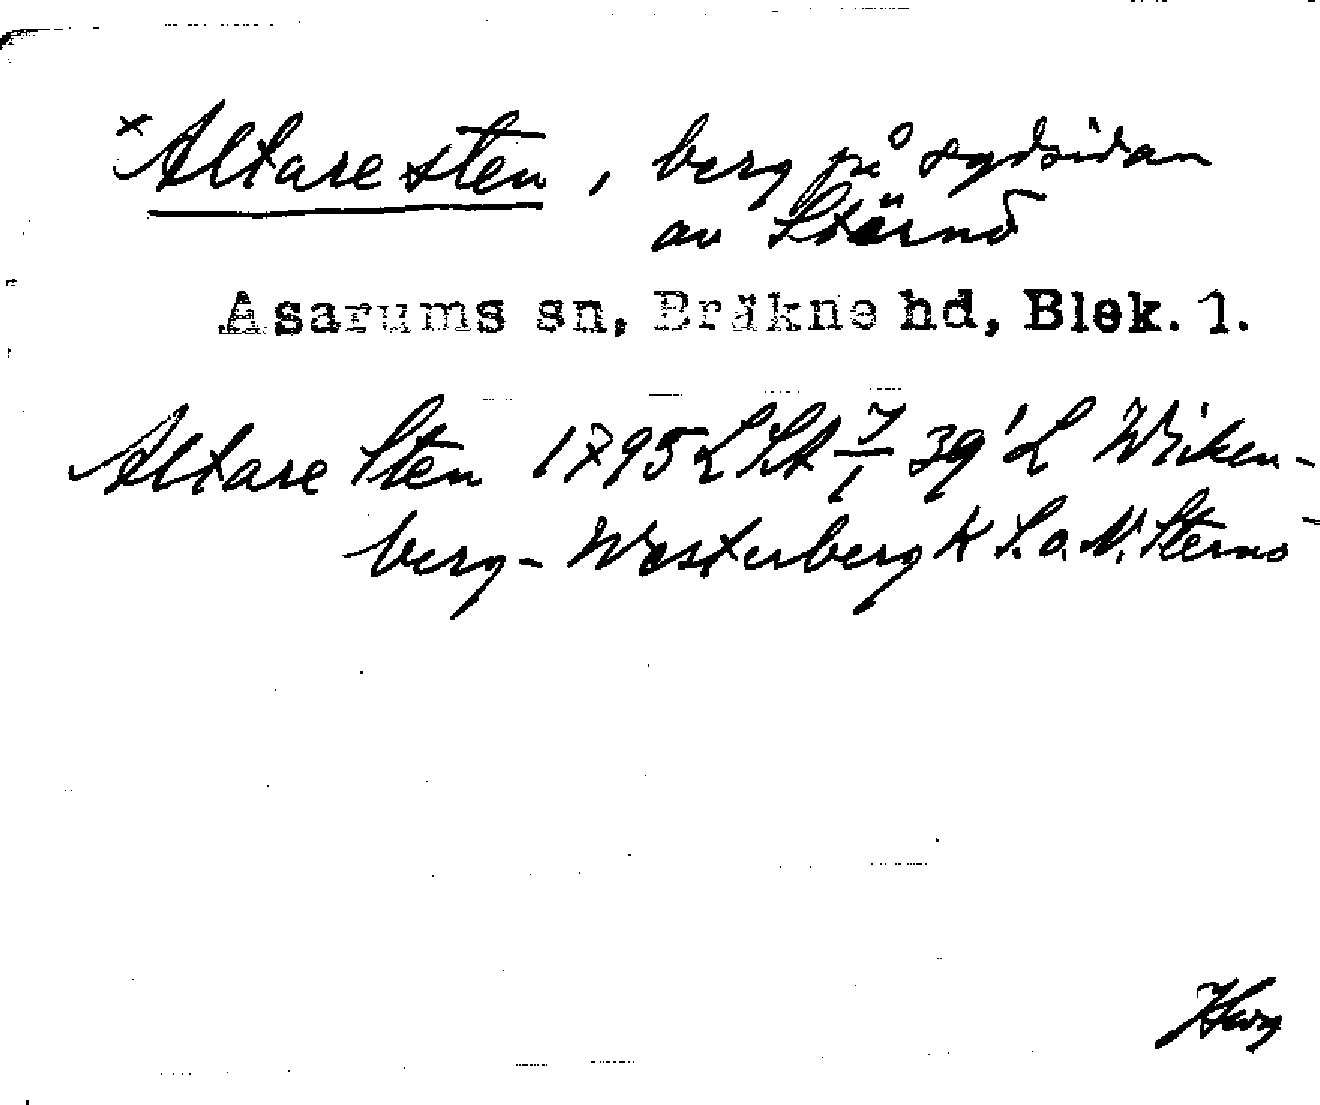 ×Altare sten, berg på sydsidan
av Stärnö
Asarums sn, Bräkne hd, Blek. l.
Altare Sten 1795 LSA 7/1 39' L Wiken-
berg - Westerberg K S. o. N. Sternö